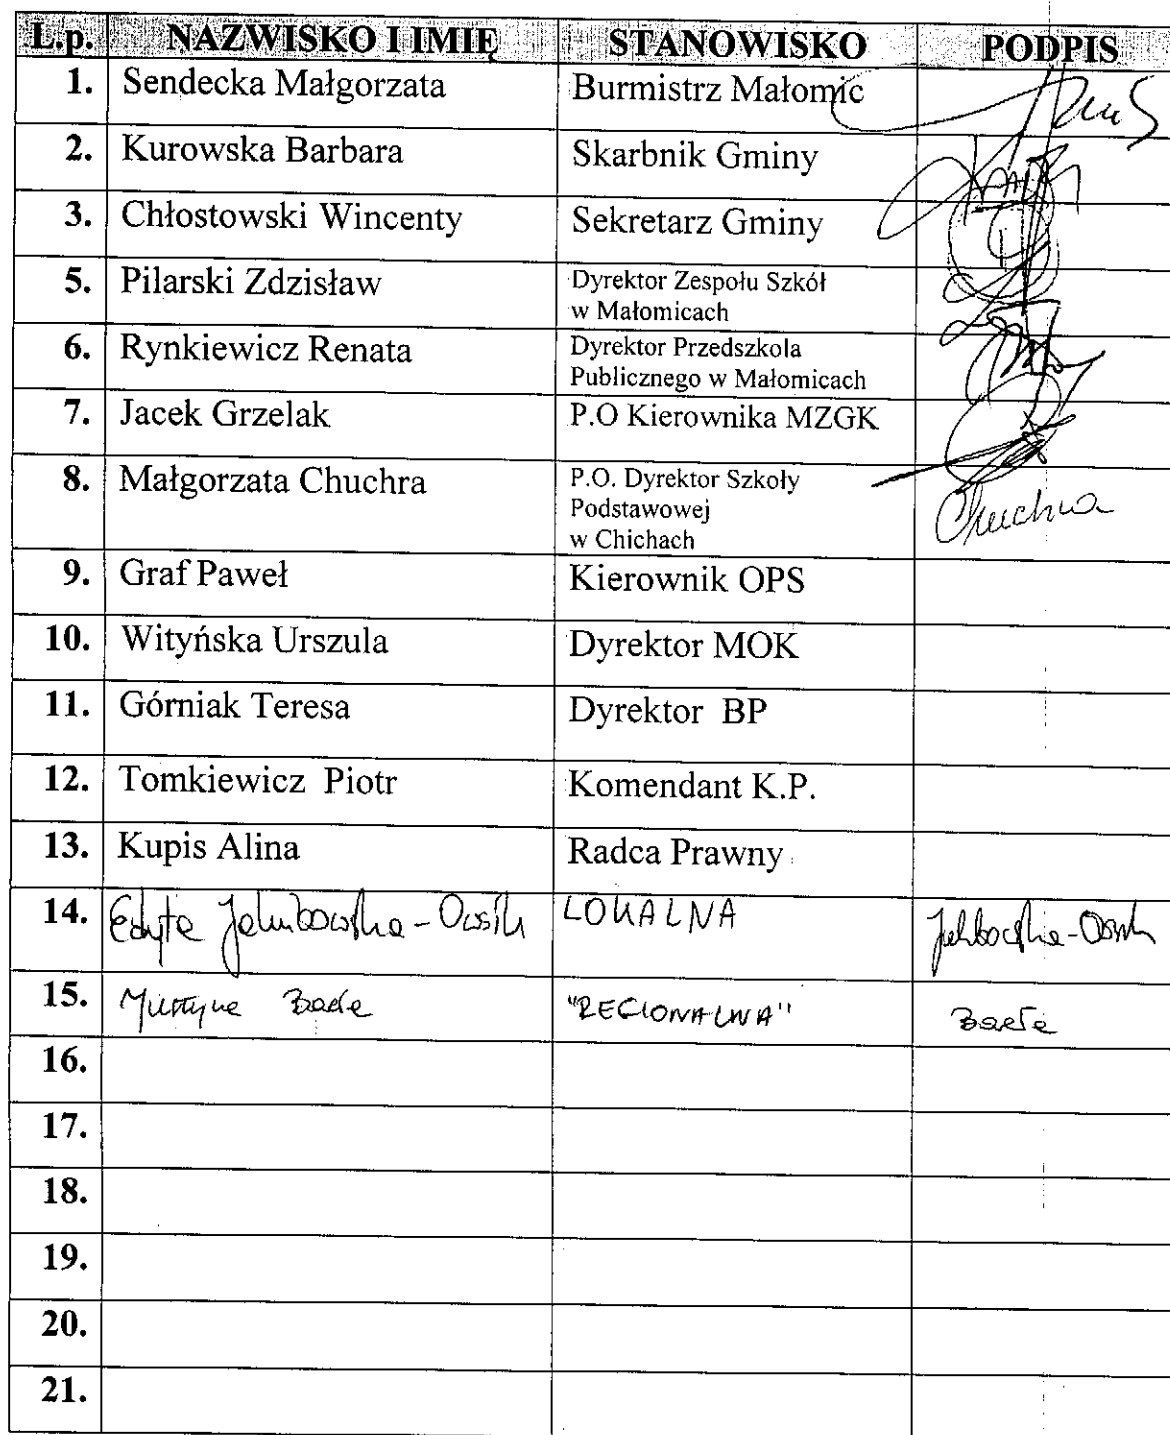 L.p. NAZWISKO I IMIĘ STANOWISKO PODPIS
1. Sendecka Małgorzata Burmistrz Małomic
2. Kurowska Barbara Skarbnik Gminy
3. Chłostowski Wincenty Sekretarz Gminy
5. Pilarski Zdzisław Dyrektor Zespołu Szkół
w Małomicach
6. Rynkiewicz Renata Dyrektor Przedszkola
Publicznego w Małomicach
7. Jacek Grzelak P.O Kierownika MZGK
8. Małgorzata Chuchra P.O. Dyrektor Szkoły
Podstawowej
w Chichach
Chuchra
9. Graf Paweł Kierownik OPS
10. Wityńska Urszula Dyrektor MOK
11. Górniak Teresa Dyrektor BP
12. Tomkiewicz Piotr Komendant K.P.
13. Kupis Alina Radca Prawny
14. Edyta Jakubowska-Owsik LOKALNA
15. "REGIONALNA"
16.
17.
18.
19.
20.
21.